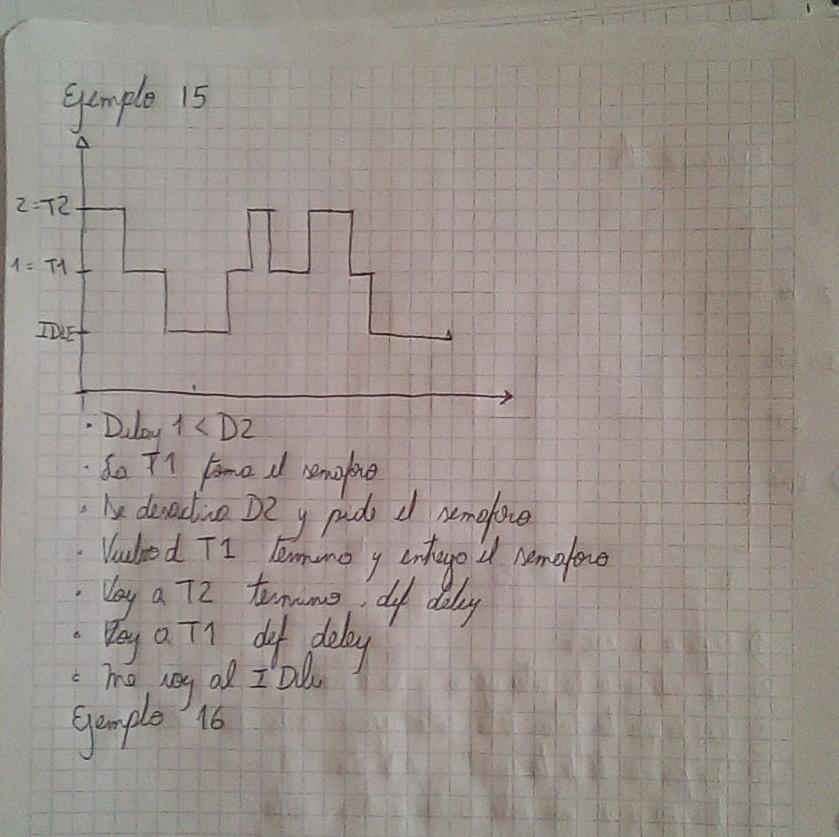 Ejemplo 15
2=T2
1= T1
IDLE
· Delay 1 < D2
· La T1 toma el semaforo
· Se desactiva D2 y pide el semaforo
· Vuelvo al T1 termino y entrego el semaforo
· Voy a T2 termino. def deley
· Voy a T1 def deley
· me voy al IDle
Ejemplo 16